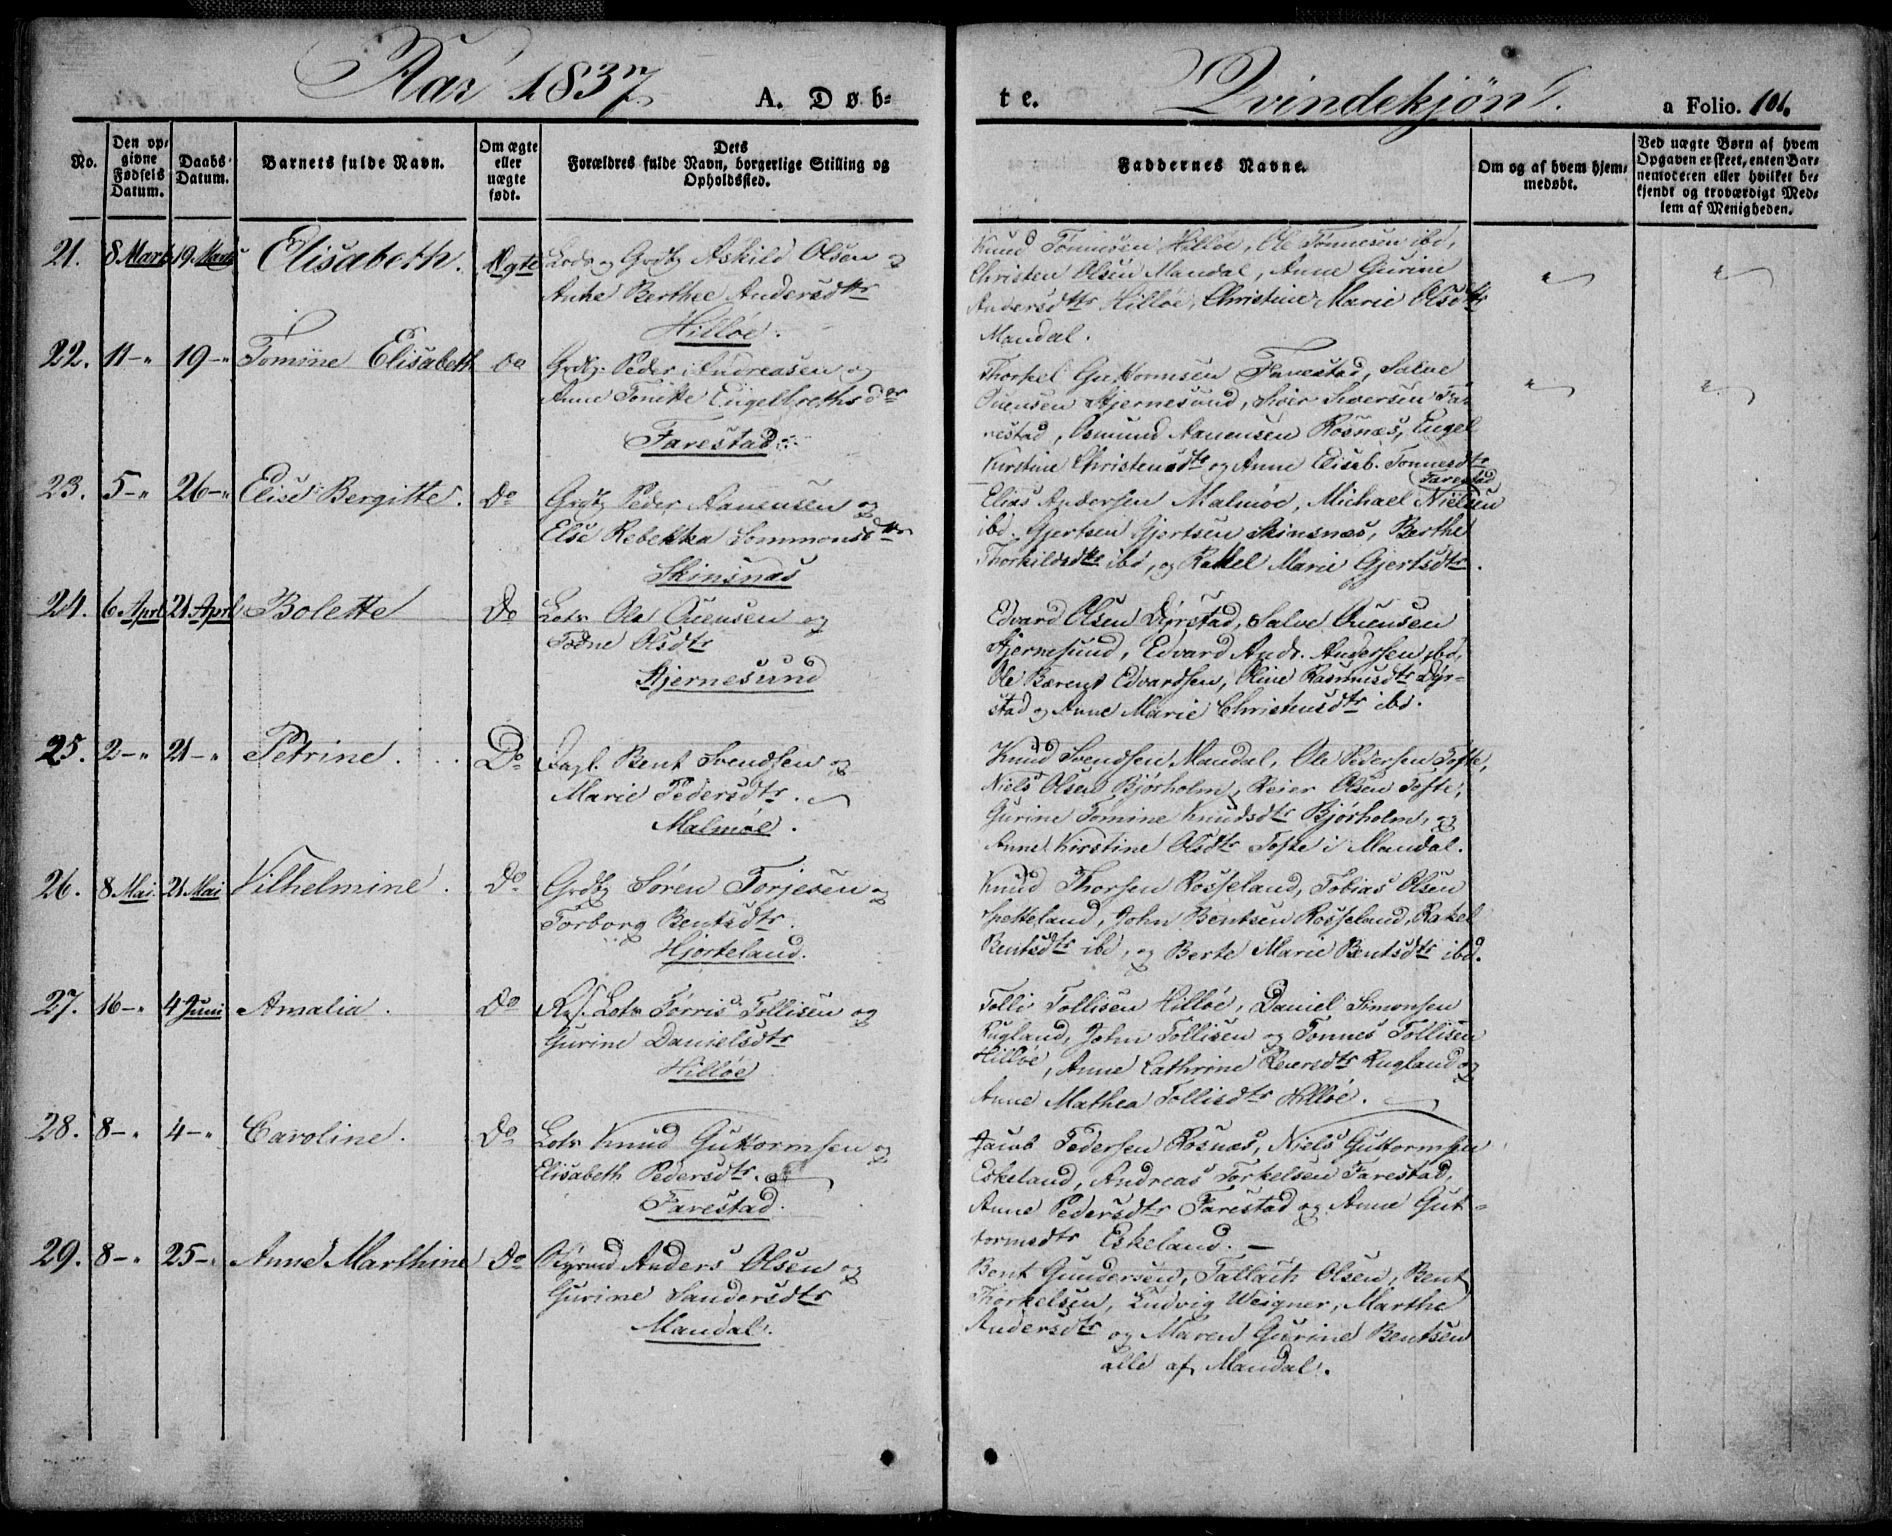 Aar 1837
A. Døb-
te.
Qvindekjøn.
a Folio. 101.
No.
Den op-
givne
Fødsels
Datum.
Daabs-
Datum.
Barnets fulde Navn.
Om ægte
eller
uægte
født.
Dets
Forældres fulde Navn, borgerlige Stilling og
Opholdssted.
Faddernes Navne.
Om og af hvem hjem-
medøbt.
Ved uægte Børn af hvem
Opgaven er skeet, enten Bar-
nemoderen eller hvilket be-
kjendt og troværdigt Med-
lem af Menigheden.
21. 8 Marts 19 Marts Elisabeth. Ægte Lods og Grdb Askild Olsen og
Anne Berthe Andersdtr
Hilløe.
Knud Tønnesen Hilløe, Ole Tønnesen ibd,
Christen Olsen Mandal, Anne Gurine
Andersdtr Hilløe, Christine Marie Olsdtr
Mandal.
22. 11-" 19-" Tomine Elisabeth do Grdb. Peder Andreasen og
Anne Tonitte Engelbrethsdtr
Farestad
Thorkel Guttormsen Farestad, Salve
Ouensen Stjernesund, Siver Siversen Fa-
restad, Osmund Aanensen Rosnæs, Engel
Kirstine Christensdtr og Anne Elisab. Tønnesdtr
Farestad
23. 5-" 26-" Elise Bergitte. Do Grdb Peder Aanensen og
Else Rebekka Sommonsdtr
Skinsnæs
Elias Andersen Malmøe, Michael Nielsen
ibd, Gjertsen Gjertsen Skinsnæs, Berthe
Thorkildsdtr ibd, og Rakel Marie Gjertsdtr.
24. 6 April 21 April Bolette Do Lots Ole Ouensen og
Todne Olsdtr
Stjernesund
Edvard Olsen Dyrstad, Salve Ouensen
Stjernesund, Edvard Andr. Andersen ibd,
Ole Bærent Edvardsen, Oline Rasmusdtr Dyr-
stad og Anne Marie Christensdtr ibd.
25. 2-" 21-" Petrine. Do Dagl. Bent Svendsen og
Marie Pedersdtr.
Malmøe.
Knud Svendsen Mandal, Ole Pedersen Tofte,
Niels Olsen Bjørholm, Reier Olsen Tofte,
Gurine Tomine Knudsdtr Bjørholm, og
Anne Kirstine Olsdtr Tofte i Mandal.
26. 8 Mai 21 Mai Vilhelmine. Do Grdb Søren Torjesen og
Torborg Bentsdtr.
Hjorteland.
Knud Thorsen Rosseland, Tobias Olsen
John Bentsen Rosseland, Rakel
Bentsdtr ibd, og Berte Marie Bentsdtr ibd.
27. 16-" 4 Juni Amalia. Do Lots Tørris Tollisen og
Gurine Danielsdtr
Hilløe
Tolli Tollisen Hilløe, Daniel Simonsen
Rugland, John Tollisen og Tønnes Tollisen
Hilløe, Anne Cathrine Reiersdtr Rugland og
Anne Mathea Tollisdtr Hilløe.
28. 8-" 4-" Caroline. Do Lots Knud Guttormsen og
Elisabeth Pedersdtr.
Farestad.
Jacob Pedersen Rosnæs, Niels Guttormsen
Eskeland, Andreas Torkelsen Farestad,
Anne Pedersdtr Farestad og Anne Gut-
tormsdtr Eskeland.
29. 8-" 25-" Anne Marthine Do Anders Olsen og
Gurine Sandersdtr
Mandal.
Bent Gundersen, Tallach Olsen, Bent
Thorkelsen, Ludvig Weigner, Marthe
Andersdtr og Maren Gurine Bentsen
alle af Mandal.